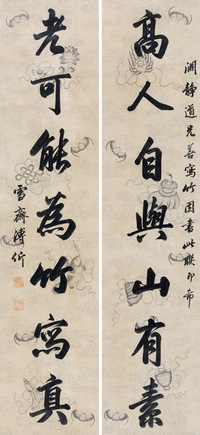 渊静道兄善写竹因书此联即希
高人自與山有素
老可能為竹寫真
雪齋溥伒